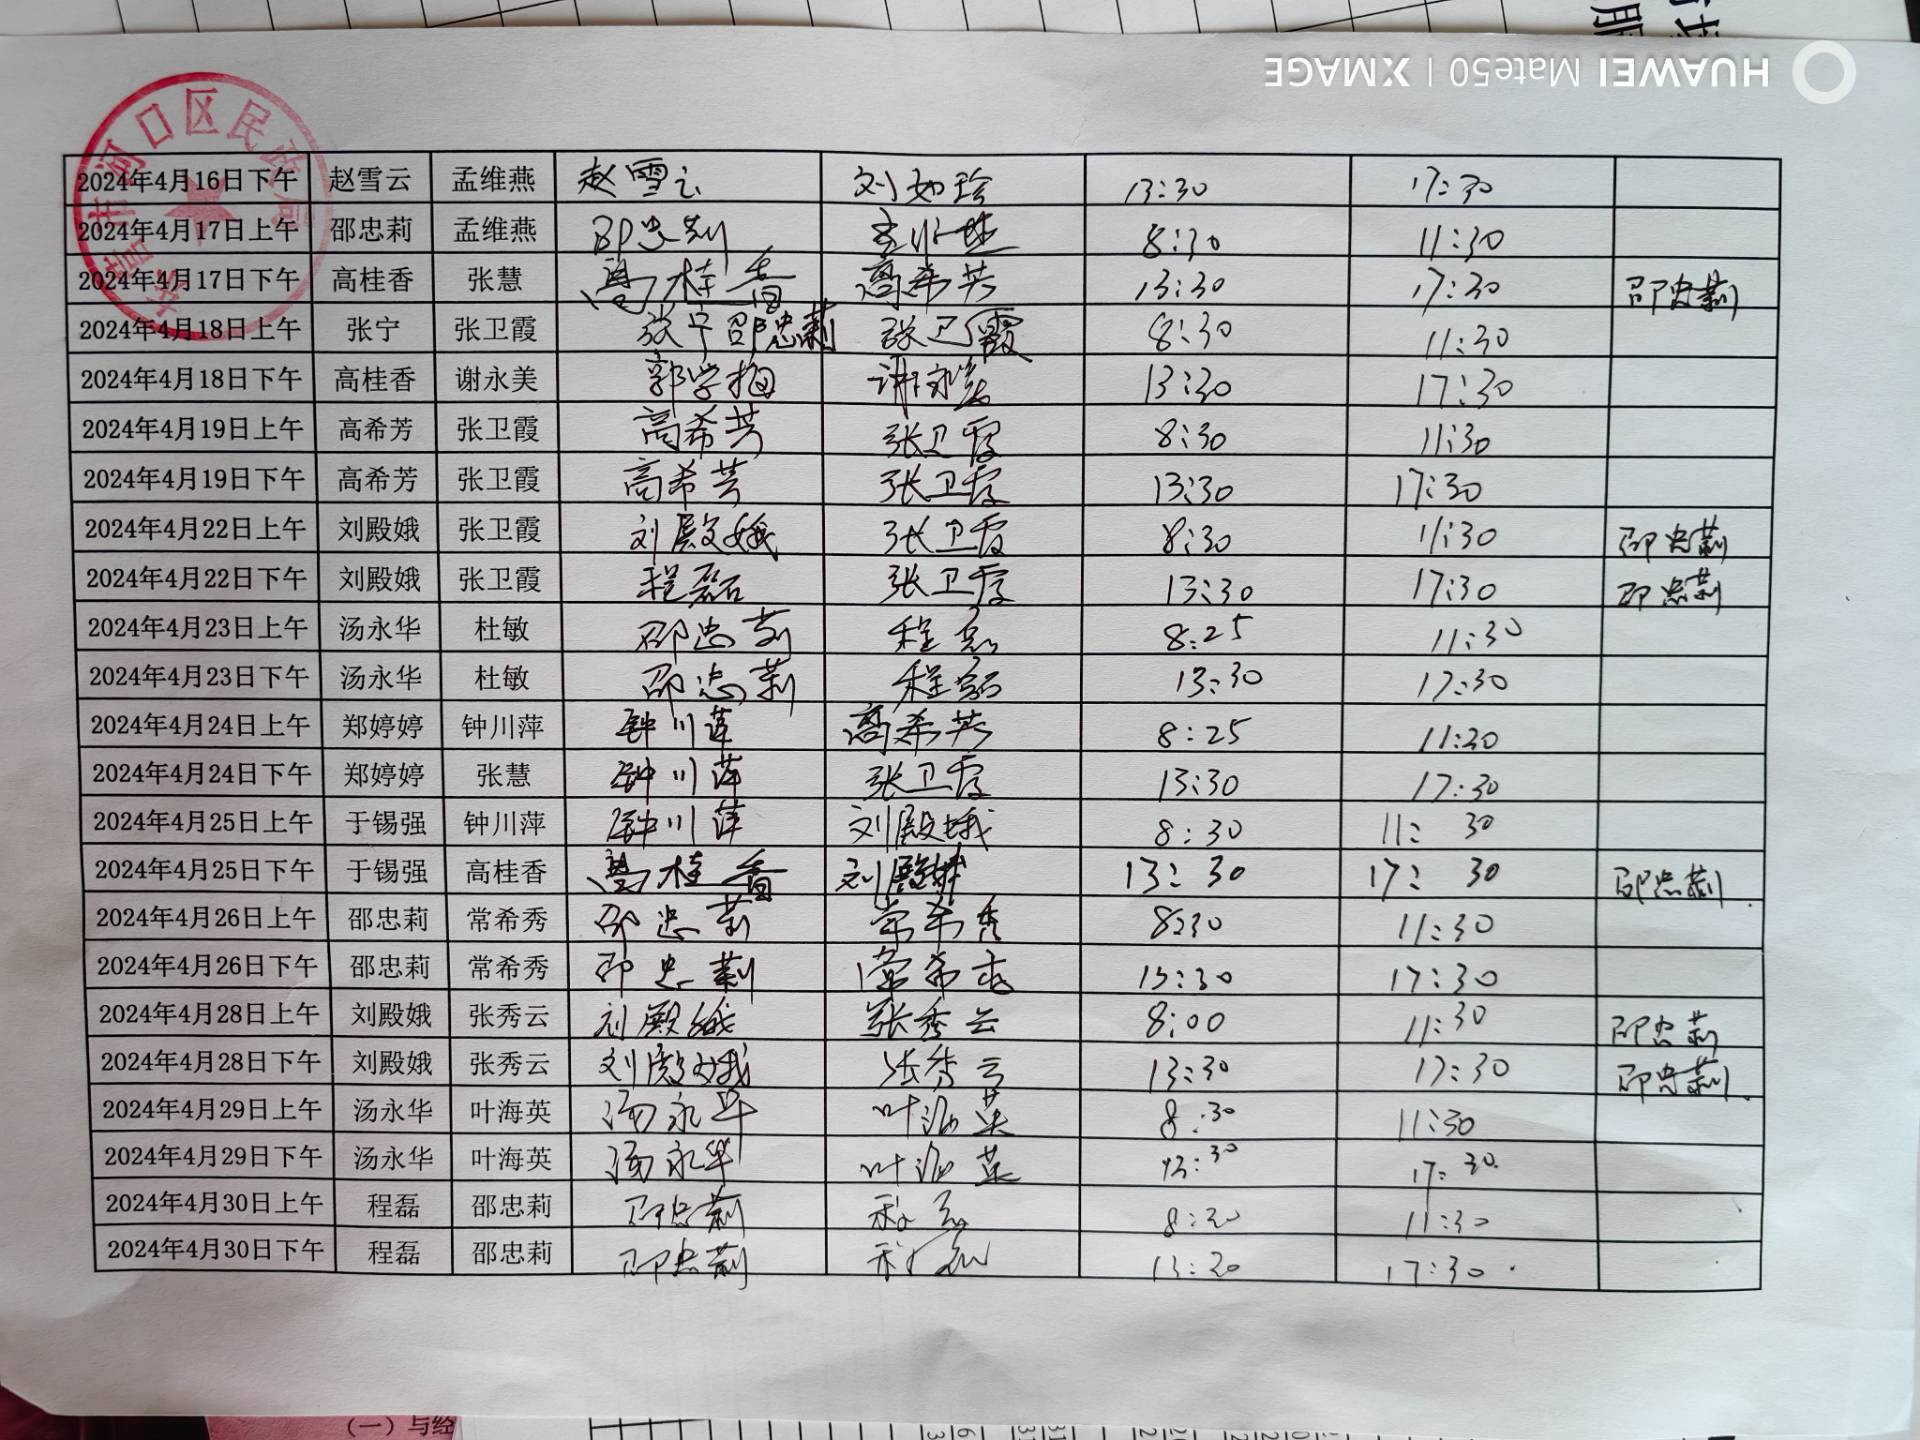 HUAWEI Mate50 | XMAGE
东营市河口区民政局
2024年4月16日下午 赵雪云 孟维燕 赵雪云 刘如珍 13:30 17:30
2024年4月17日上午 邵忠莉 孟维燕 邵忠莉 8:30 11:30
2024年4月17日下午 高桂香 张慧 高桂香 高希芳 13:30 17:30 邵忠莉
2024年4月18日上午 张宁 张卫霞 张宁 邵忠莉 张卫霞 8:30 11:30
2024年4月18日下午 高桂香 谢永美 郭学梅 谢永美 13:30 17:30
2024年4月19日上午 高希芳 张卫霞 高希芳 张卫霞 8:30 11:30
2024年4月19日下午 高希芳 张卫霞 高希芳 张卫霞 13:30 17:30
2024年4月22日上午 刘殿娥 张卫霞 刘殿娥 张卫霞 8:30 11:30 邵忠莉
2024年4月22日下午 刘殿娥 张卫霞 程磊 张卫霞 13:30 17:30 邵忠莉
2024年4月23日上午 汤永华 杜敏 邵忠莉 程磊 8:25 11:30
2024年4月23日下午 汤永华 杜敏 邵忠莉 程磊 13:30 17:30
2024年4月24日上午 郑婷婷 钟川萍 钟川萍 高希芳 8:25 11:30
2024年4月24日下午 郑婷婷 张慧 钟川萍 张卫霞 13:30 17:30
2024年4月25日上午 于锡强 钟川萍 钟川萍 刘殿娥 8:30 11:30
2024年4月25日下午 于锡强 高桂香 高桂香 刘殿娥 13:30 17:30 邵忠莉
2024年4月26日上午 邵忠莉 常希秀 邵忠莉 常希秀 8:30 11:30
2024年4月26日下午 邵忠莉 常希秀 邵忠莉 常希秀 13:30 17:30
2024年4月28日上午 刘殿娥 张秀云 刘殿娥 张秀云 8:00 11:30 邵忠莉
2024年4月28日下午 刘殿娥 张秀云 刘殿娥 张秀云 13:30 17:30 邵忠莉
2024年4月29日上午 汤永华 叶海英 汤永华 叶海英 8:30 11:30
2024年4月29日下午 汤永华 叶海英 汤永华 叶海英 13:30 17:30
2024年4月30日上午 程磊 邵忠莉 邵忠莉 程磊 8:20 11:30
2024年4月30日下午 程磊 邵忠莉 邵忠莉 程磊 13:20 17:30
(一)与经